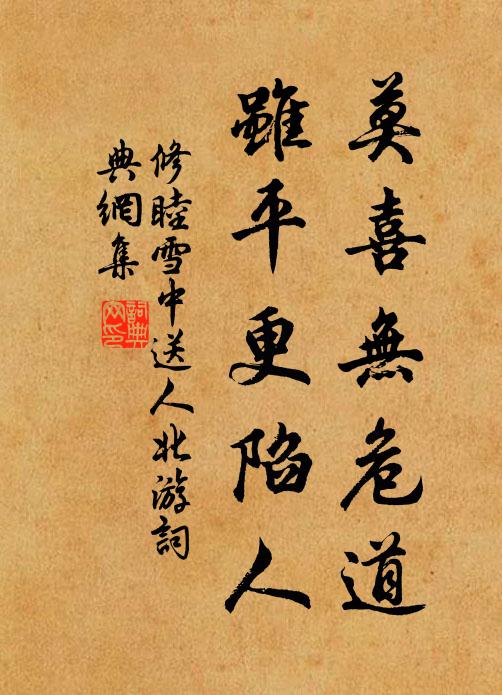 莫喜無危道
雖平更陷人
修睦雪中送人北游詞
典網集
詞典
网印